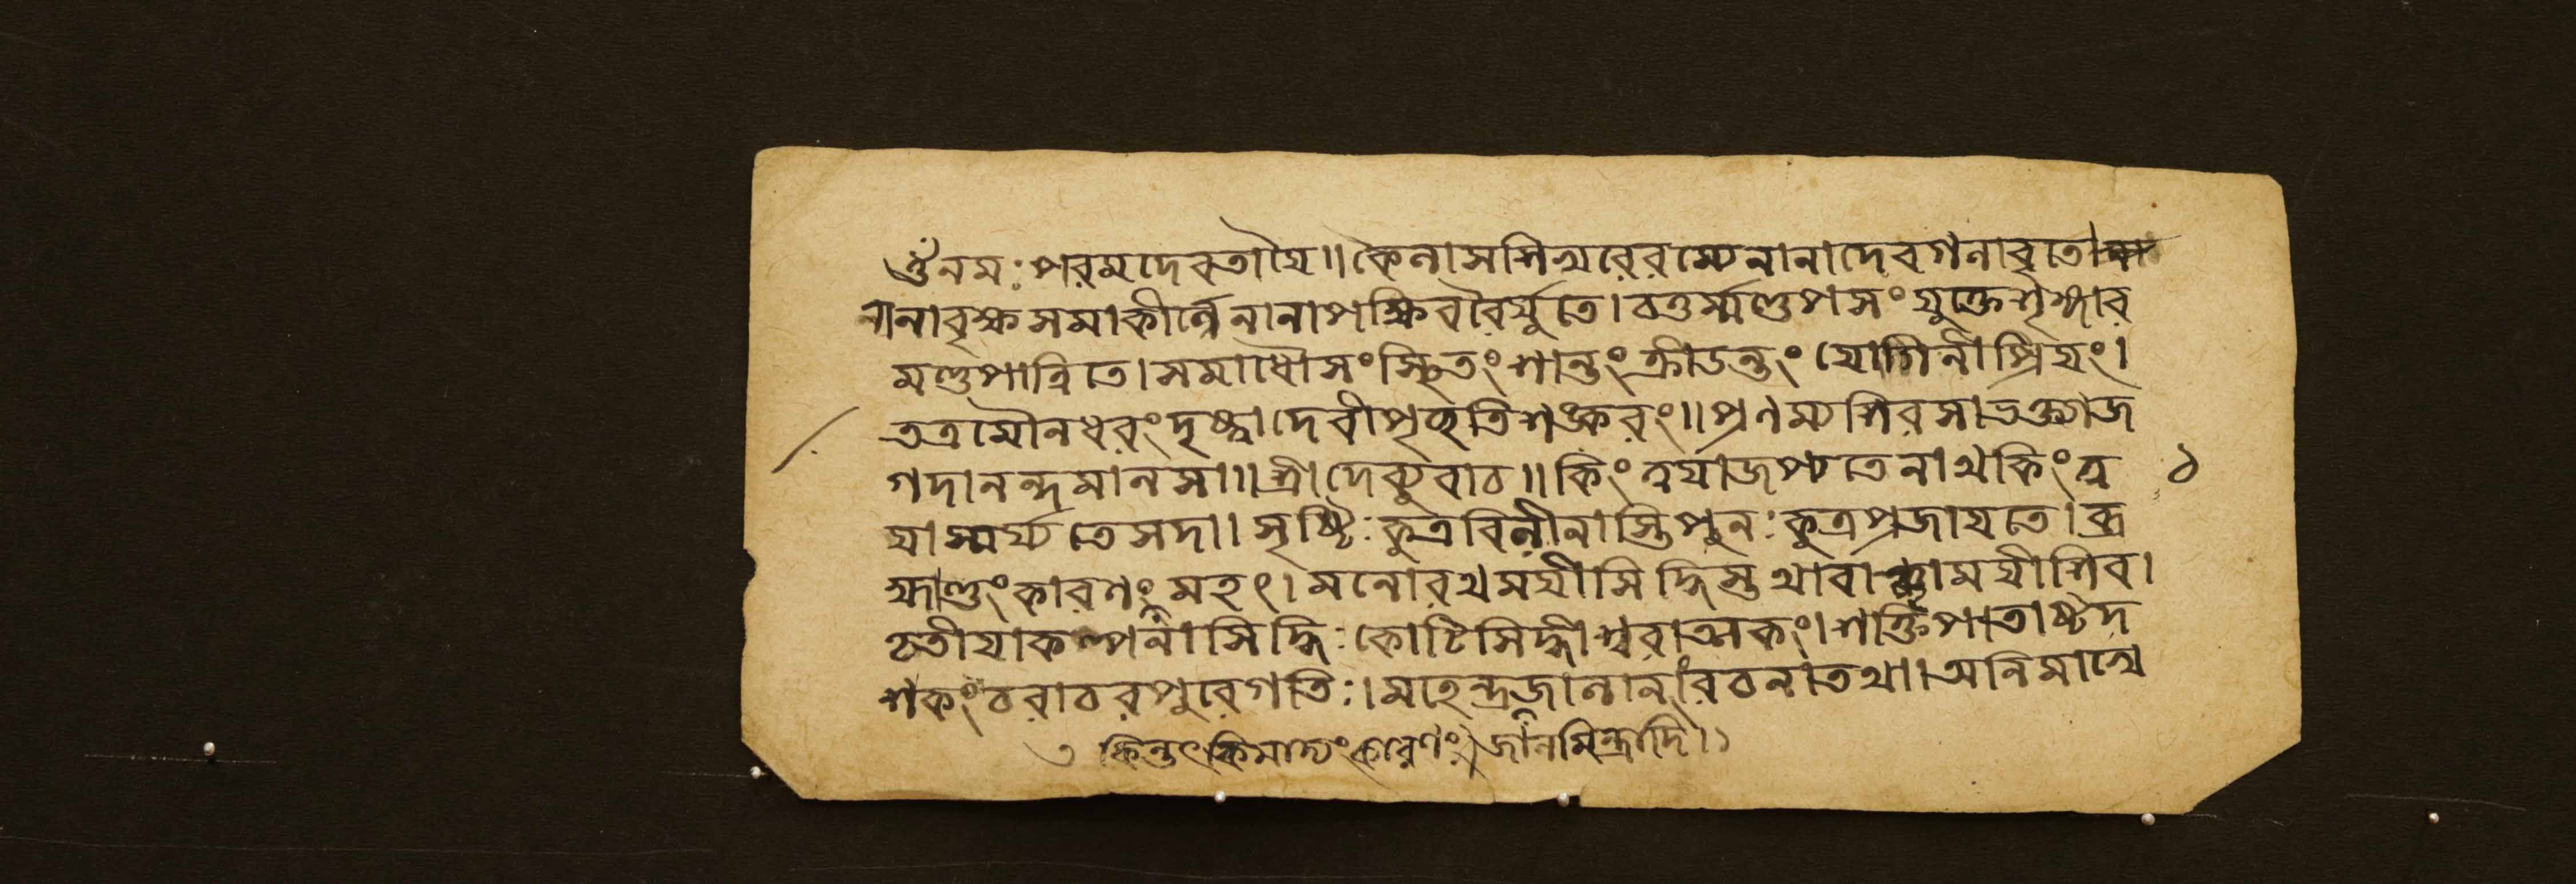 ওঁ নমঃ পরমদেবতায়ৈ॥ কৈলাসশিখরে রম্যে নানাদেবগনাবৃতে।
নানাবৃক্ষসমাকীর্ণ্ণে নানাপক্ষিরবৈর্যুতে। চতুর্ম্মণ্ডপসংযুক্তে শৃঙ্গার
মণ্ডপান্বিতে। সমাধৌ সংস্থিতং শান্তং ক্রীডন্তং যোগিনীপ্রিয়ং।
তত্র মৌনধরং দৃষ্ট্বা দেবী পৃচ্ছতি শঙ্করং॥ প্রণম্য শিরসা ভক্ত্যা জ
গদানন্দমানসা॥ শ্রীদেব্যুবাচ॥ কিং ত্বয়া জপ্যতে নাথ কিং ত্ব ১
য়া স্মর্য্যতে সদা। সৃষ্টিঃ কুত্র বিলীনাস্তি পুনঃ কুত্র প্রজায়তে। ব্র
হ্মাণ্ডং কারণং মহৎ। মনোরথময়ী সিদ্ধিস্তথা বাঞ্ছাময়ী শিব।
তৃতীয়া কল্পনা সিদ্ধিঃ কোটিসিদ্ধীশ্বরাত্মকং। শক্তিপাতাষ্টদ
শকং চরাচরপুরে গতিঃ। মহেন্দ্রজাল রচনা তথা। অনিমাদ্যে
৩ কিন্তৎ কিমাদ্যং কারণং জালমিন্দ্রাদি।১